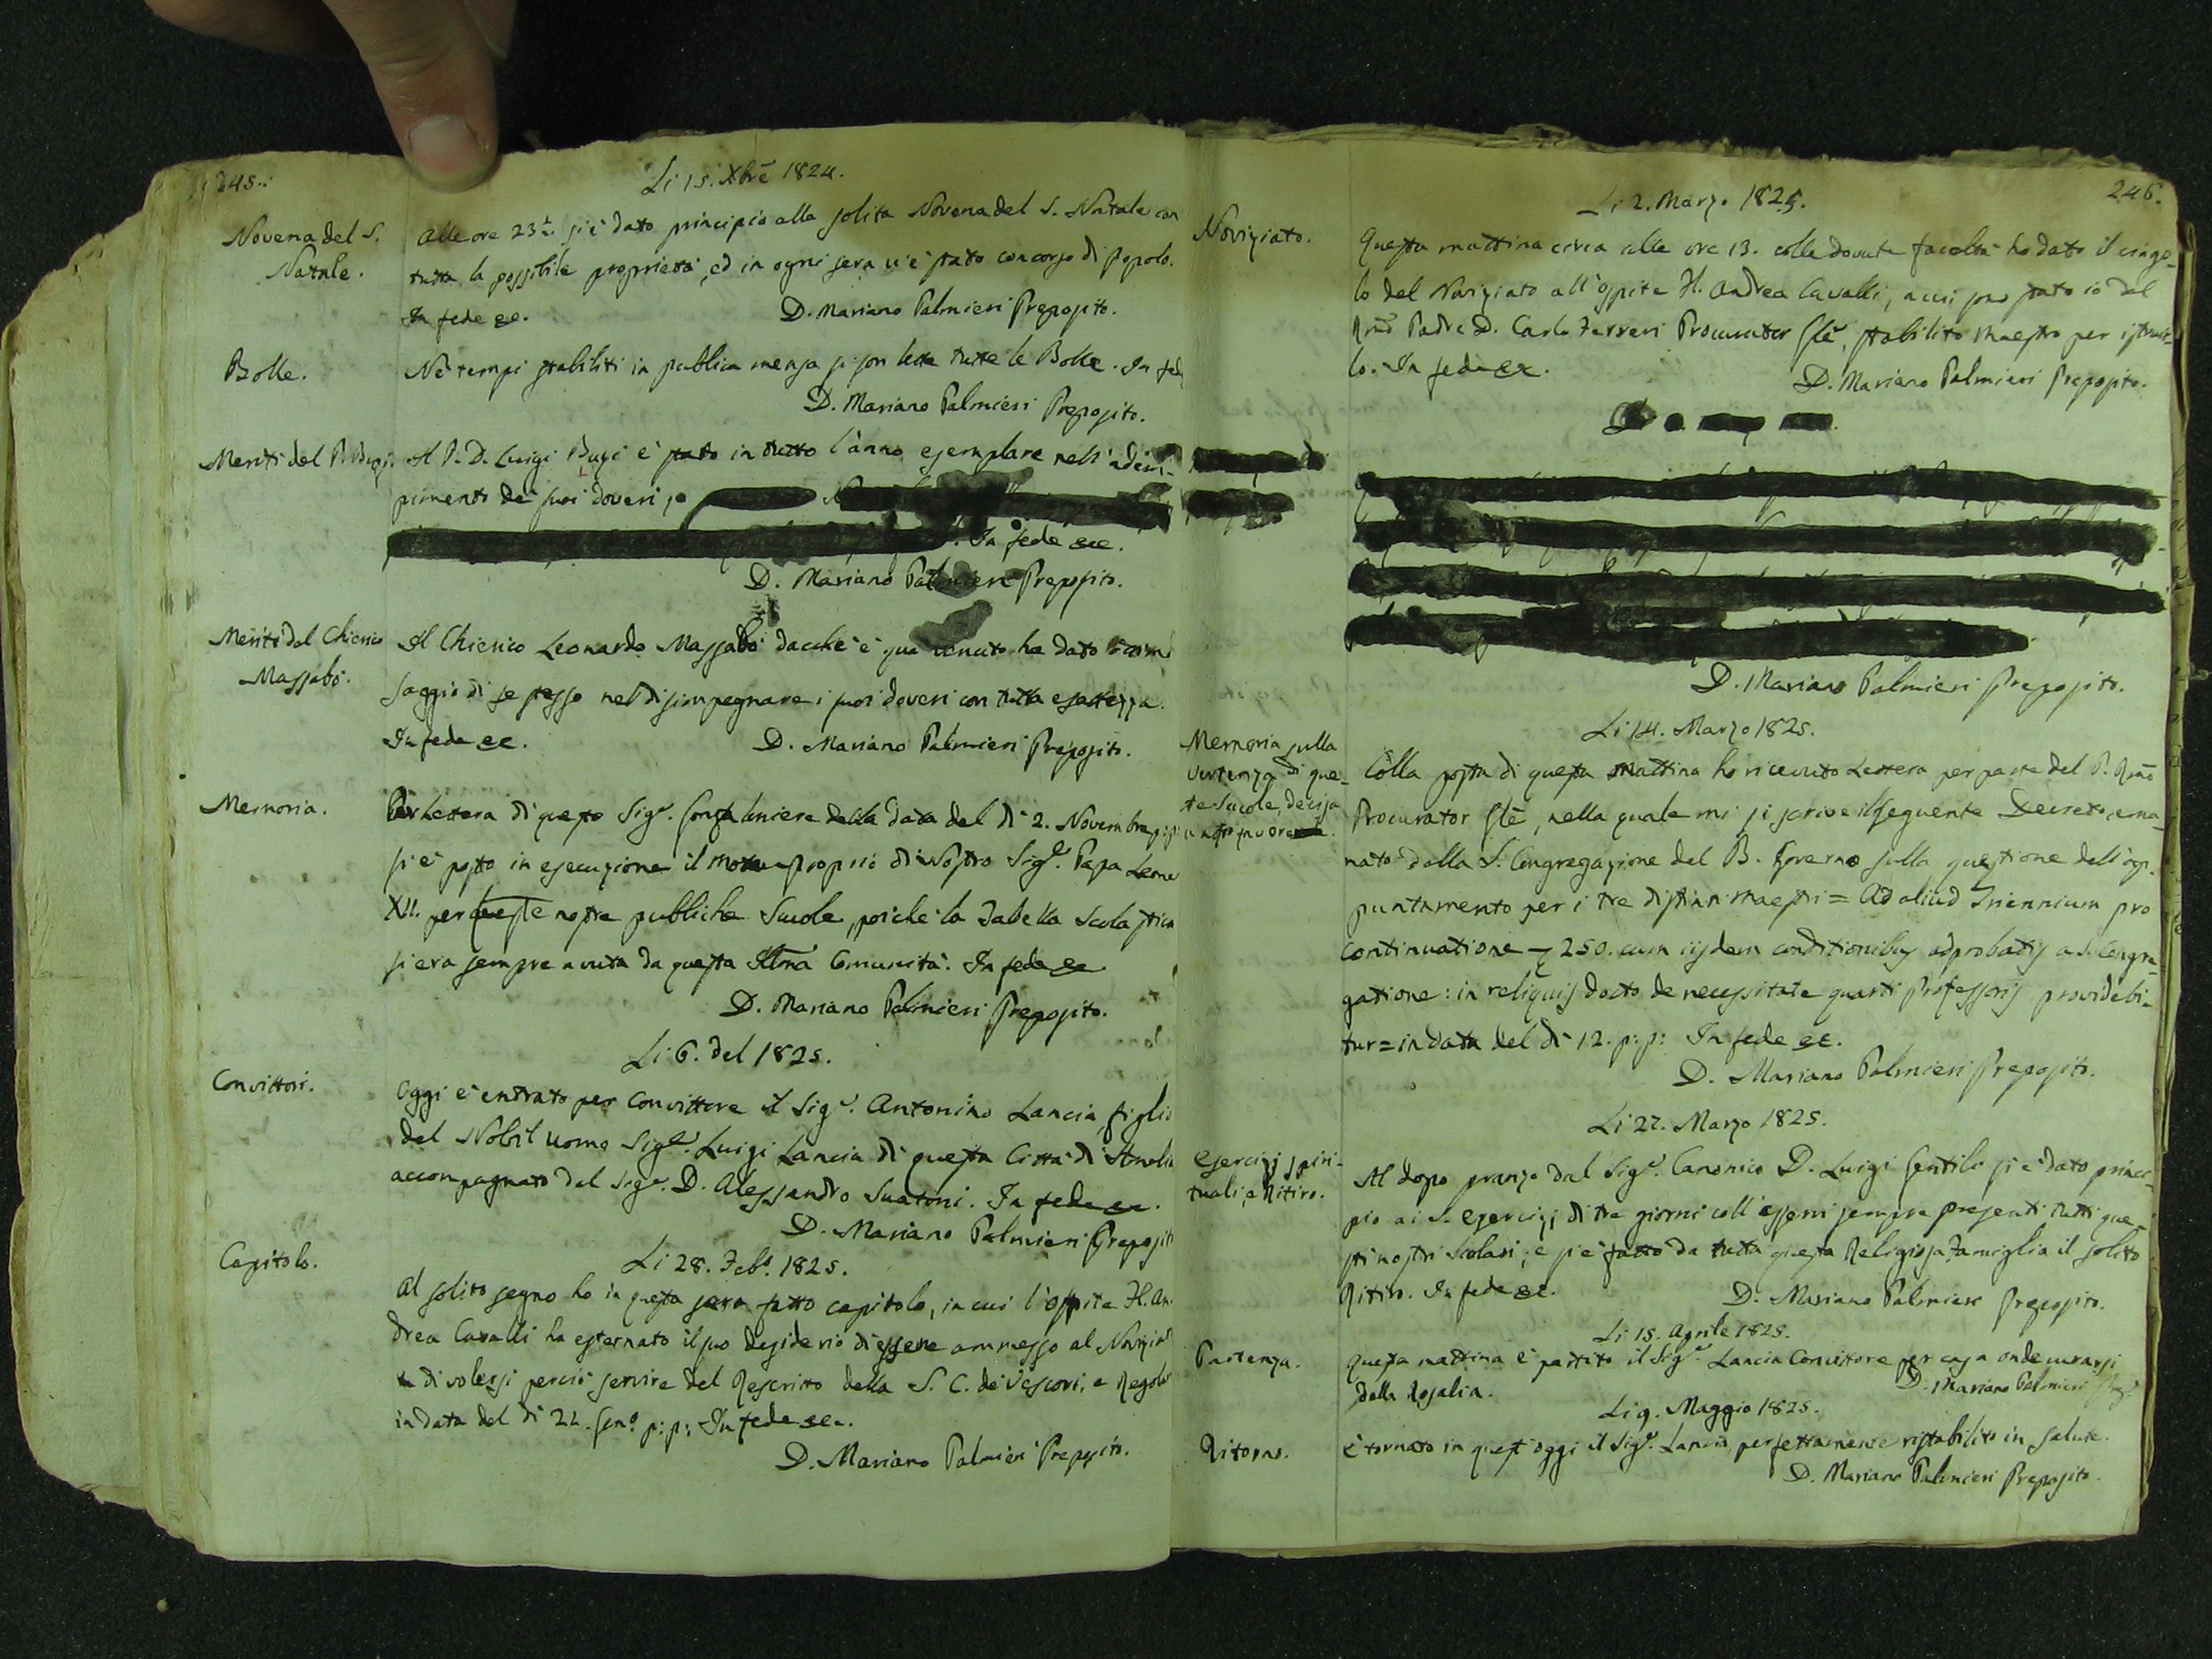 245.
Li 15. Xbrē 1824.
Novena del S.
Natale.
Alle ore 23½ si è dato principio alla solita Novena del S. Natale con
tutta la possibile proprietà, ed in ogni sera vi è stato concorso di Popolo.
In fede ec. D. Mariano Palmieri Preposito.
Bolle.
Ne' tempi stabiliti in publica mensa si son lette tutte le Bolle. In fed
D. Mariano Palmieri Preposito.
Meriti del P. Bugi.
Il P. D. Luigi Bugi è stato in tutto l'anno esemplare nell'adem-
pimento de' suoi doveri,
In fede ec.
D. Mariano Palmieri Preposito.
Meriti del Chierico
Massabò.
Il Chierico Leonardo Massabò dacchè è qua venuto ha dato
saggio di se stesso nel disimpegnare i suoi doveri con tutta esattezza.
In fede ec. D. Mariano Palmieri Preposito.
Memoria.
Per lettera di questo Sigr. Gonfaloniere della data del dì 2. Novembre p: p:
si è posto in esecuzione il Motu-proprio di Nostro Sigre. Papa Leone
XII. per queste nostre pubbliche Scuole, poichè la Tabella Scolastica
si era sempre avuta da questa Illma Comunità. In fede ec.
D. Mariano Palmieri Preposito.
Li 6. del 1825.
Convittori.
Oggi è entrato per Convittore il Sigr. Antonino Lancia, figlio
del Nobil uomo Sigre. Luigi Lancia di questa Città di Amelia
accompagnato dal Sigr. D. Alessandro Suatoni. In fede ec.
D. Mariano Palmieri Preposit
Li 28. Febo. 1825.
Capitolo.
Al solito segno ho in questa sera fatto capitolo, in cui l'ospite H. An-
drea Cavalli ha esternato il suo desiderio di essere ammesso al Novizia
e di volersi perciò servire del Rescritto della S. C. de' Vescovi, e Regola
in data del dì 22. Geno. p: p: In fede ec.
D. Mariano Palmieri Preposito.
246.
Li 2. Marzo 1825.
Noviziato.
Questa mattina circa alle ore 13. colle dovute facoltà ho dato il cingo-
lo del Noviziato all'ospite H. Andrea Cavalli, a cui sono stato io dal
Rmo Padre D. Carlo Ferreri Procurator Glē, stabilito Maestro per istruir-
lo. In fede ec. D. Mariano Palmieri Preposito.
D. Mariano Palmieri Preposito.
Li 14. Marzo 1825.
Memoria sulla
vertenza di que-
ste Scuole, decisa
a nostro favore.
Colla posta di questa mattina ho ricevuto Lettera per parte del P. Rmo
Procurator Glē, nella quale mi si scrive il seguente Decreto, ema-
nato dalla S. Congregazione del B. Governo sulla questione dell'ap-
puntamento per i tre distinti Maestri = Ad aliud Triennium pro
continuatione 250. cum iisdem conditionibus adprobatis a S. Congre-
gatione: in reliquis docto de necessitate quarti Professoris providebi-
tur = in data del dì 12. p: p: In fede ec.
D. Mariano Palmieri Preposito.
Li 27. Marzo 1825.
Esercizj spiri-
tuali, e Ritiro.
Al dopo pranzo dal Sigr. Canonico D. Luigi Gentili si è dato princi-
pio ai S. Esercizj di tre giorni coll'esservi sempre presenti tutti que-
sti nostri Scolari; e si è fatto da tutta questa Religiosa Famiglia il solito
Ritiro. In fede ec. D. Mariano Palmieri Preposito.
Li 15. Aprile 1825.
Partenza.
Questa mattina è partito il Sigr. Lancia Convittore per casa onde curarsi
della Rosalia. D. Mariano Palmieri Prepo.
Li 9. Maggio 1825.
Ritorno.
È tornato in quest'oggi il Sigr. Lancia, perfettamente ristabilito in salute.
D. Mariano Palmieri Preposito.